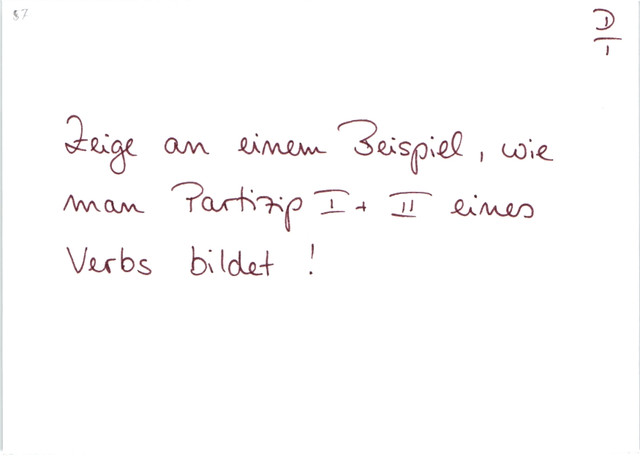 87
D
1
Zeige an einem Beispiel, wie
man Partizip I + II eines
Verbs bildet !